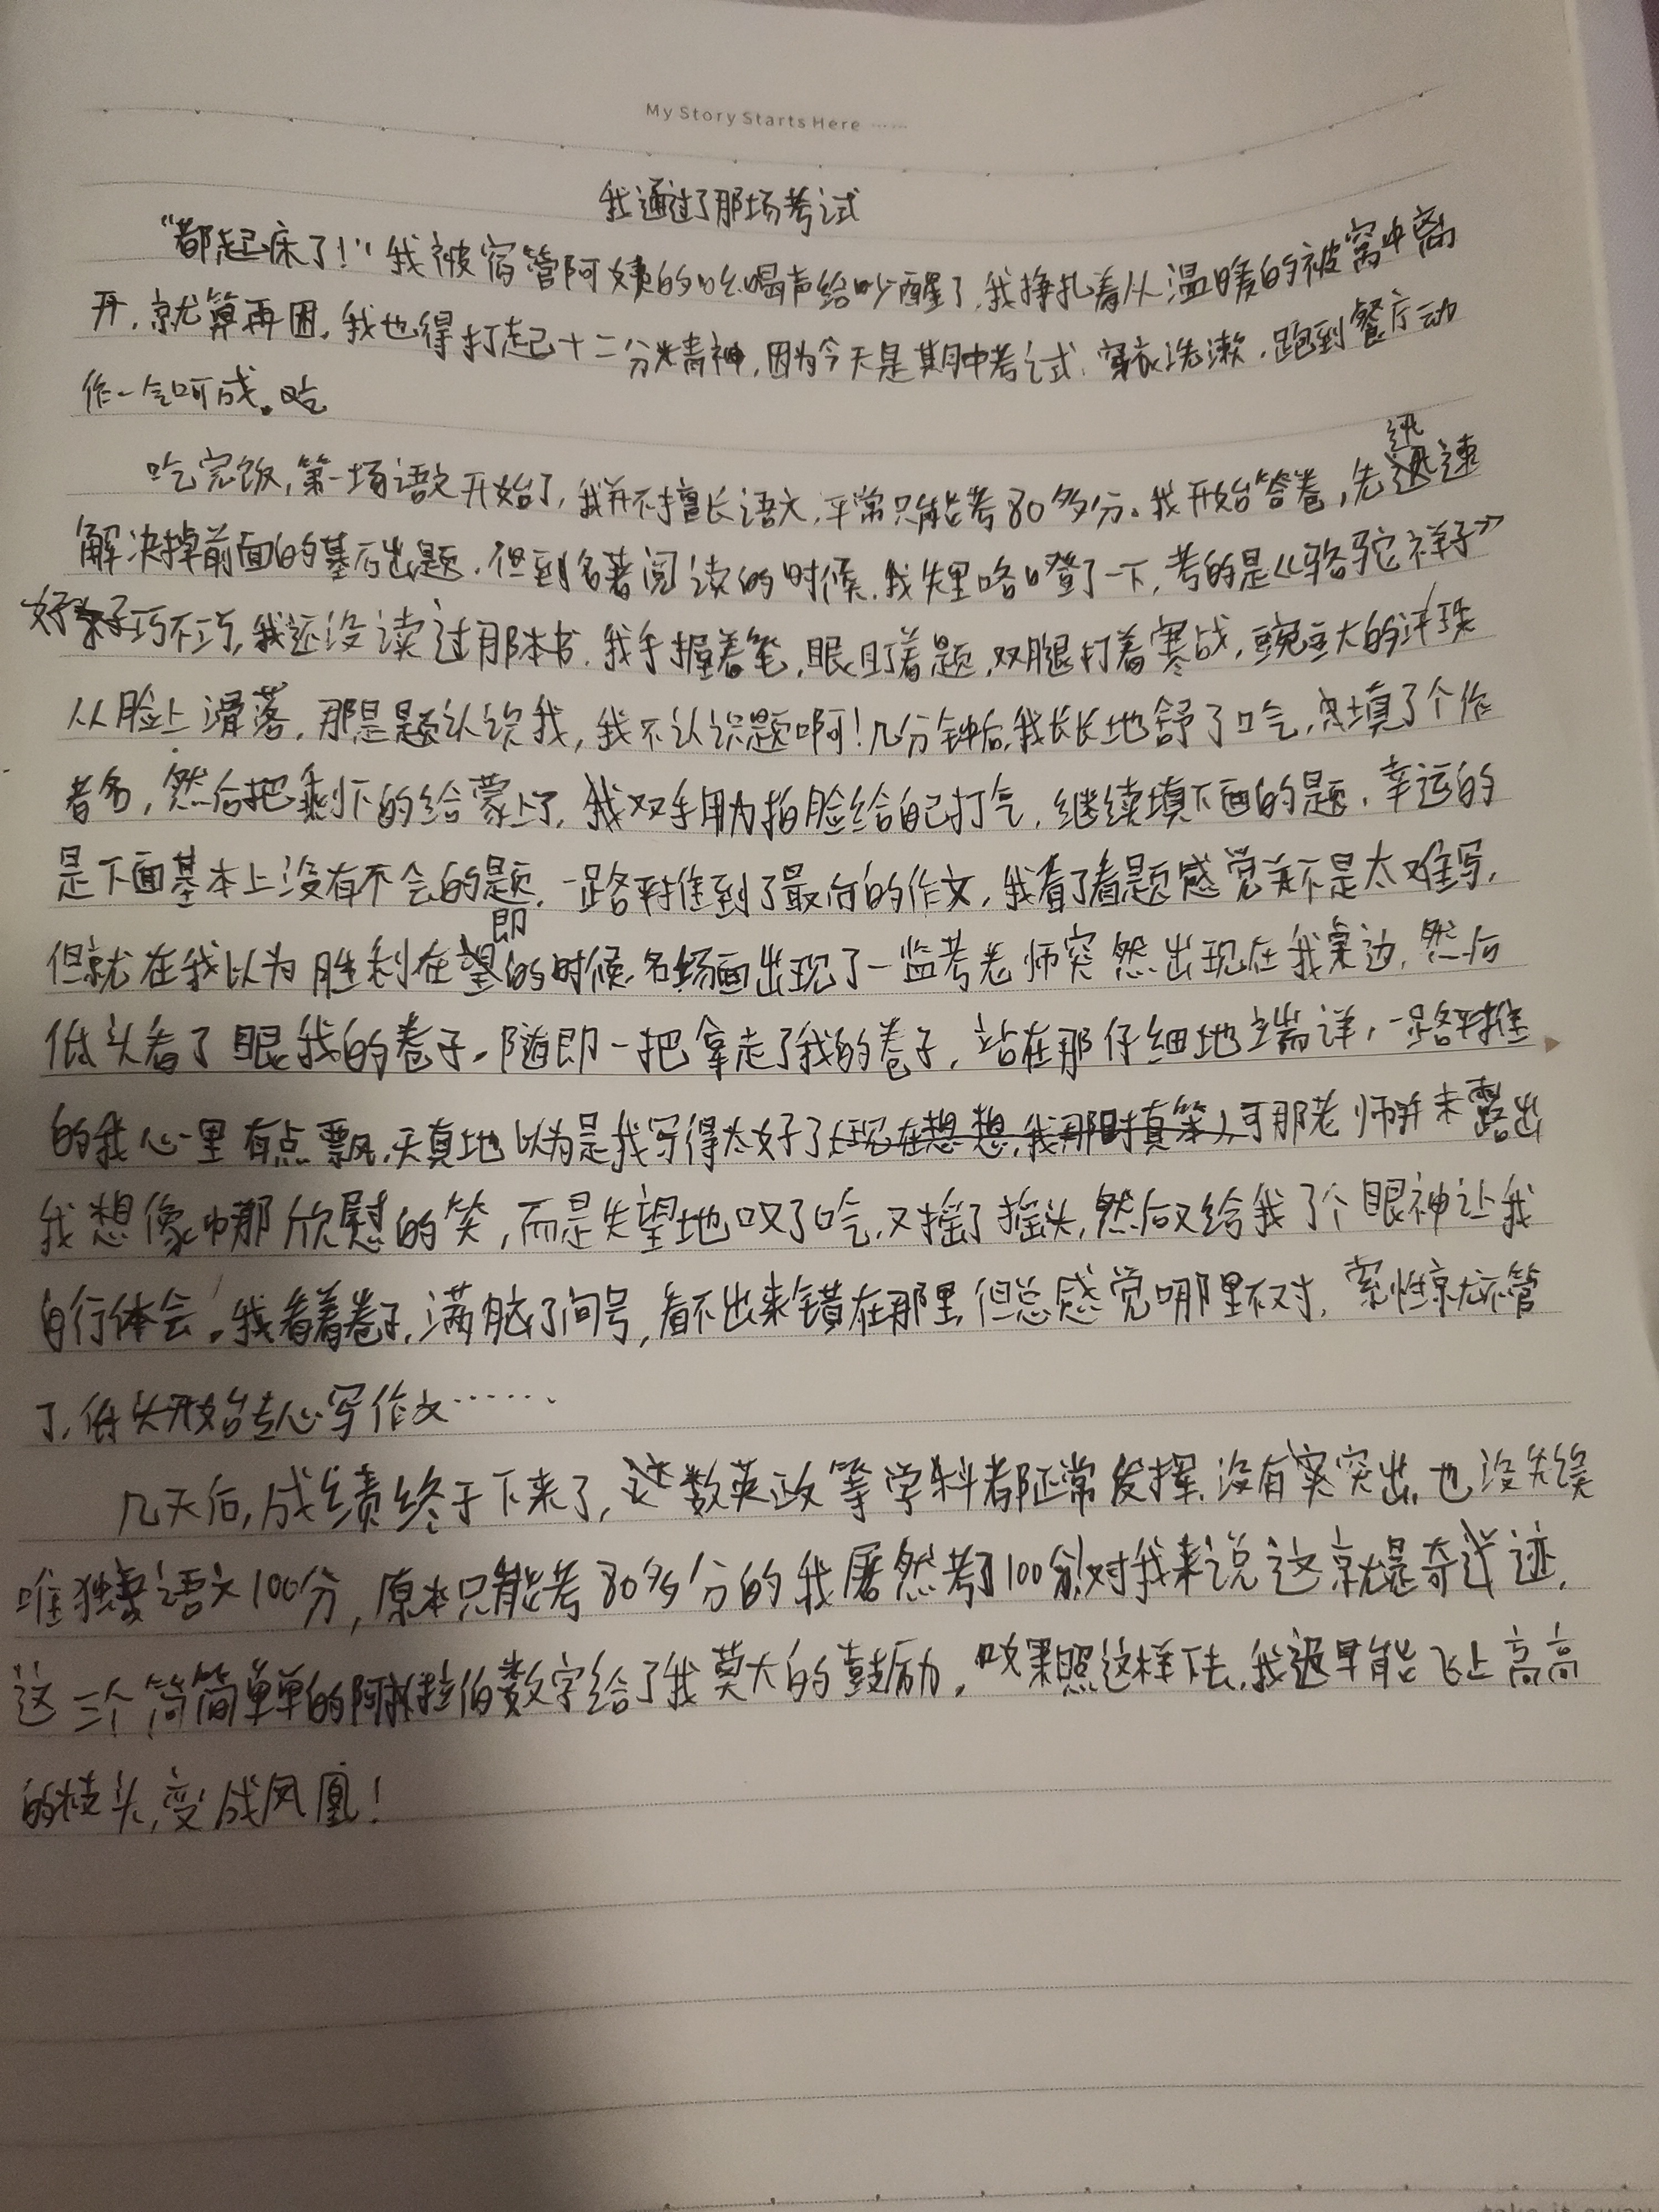 My Story Starts Here ……
我通过了那场考试
“都起床了!”我被宿管阿姨的吆喝声给吵醒了,我挣扎着从温暖的被窝中离
开,就算再困,我也得打起十二分精神,因为今天是期中考试,穿衣洗漱,跑到餐厅动
作一气呵成。吃
吃完饭,第一场语文开始了,我并不擅长语文,平常只能考80多分。我开始答卷,先迅速
解决掉前面的基础题,但到名著阅读的时候,我失里咯噔了一下,考的是《骆驼祥子》
好巧不巧,我还没读过那本书,我手握着笔,眼盯着题,双腿打着寒战,豌豆大的汗珠
从脸上滑落,那是题认识我,我不认识题啊!几分钟后,我长长地舒了口气,只填了个作
者名,然后把剩下的给蒙上了,我双手用力拍脸给自己打气,继续填下面的题,幸运的
是下面基本上没有不会的题,一路平推到了最后的作文,我看了看题感觉并不是太难写,
但就在我以为胜利在即的时候,名场面出现了一监考老师突然出现在我桌边,然后
低头看了眼我的卷子,随即一把拿走了我的卷子,站在那仔细地端详,一路平推
的我心里有点飘,天真地以为是我写得太好了(现在想想,我那时真笨),可那老师并未露出
我想像中那欣慰的笑,而是失望地叹了口气,又摇了摇头,然后又给我了个眼神让我
自行体会。我看着卷子,满脑子问号,看不出来错在那里,但总感觉哪里不对,索性就不管
了,低头开始专心写作文……
几天后,成绩终于下来了,数英政等学科都正常发挥,没有突出,也没失误
唯独语文100分,原本只能考80多分的我居然考了100分,对我来说这就是奇迹,
这三个简简单单的阿拉伯数字给了我莫大的鼓励,如果照这样下去,我迟早能飞上高高
的枝头,变成凤凰!